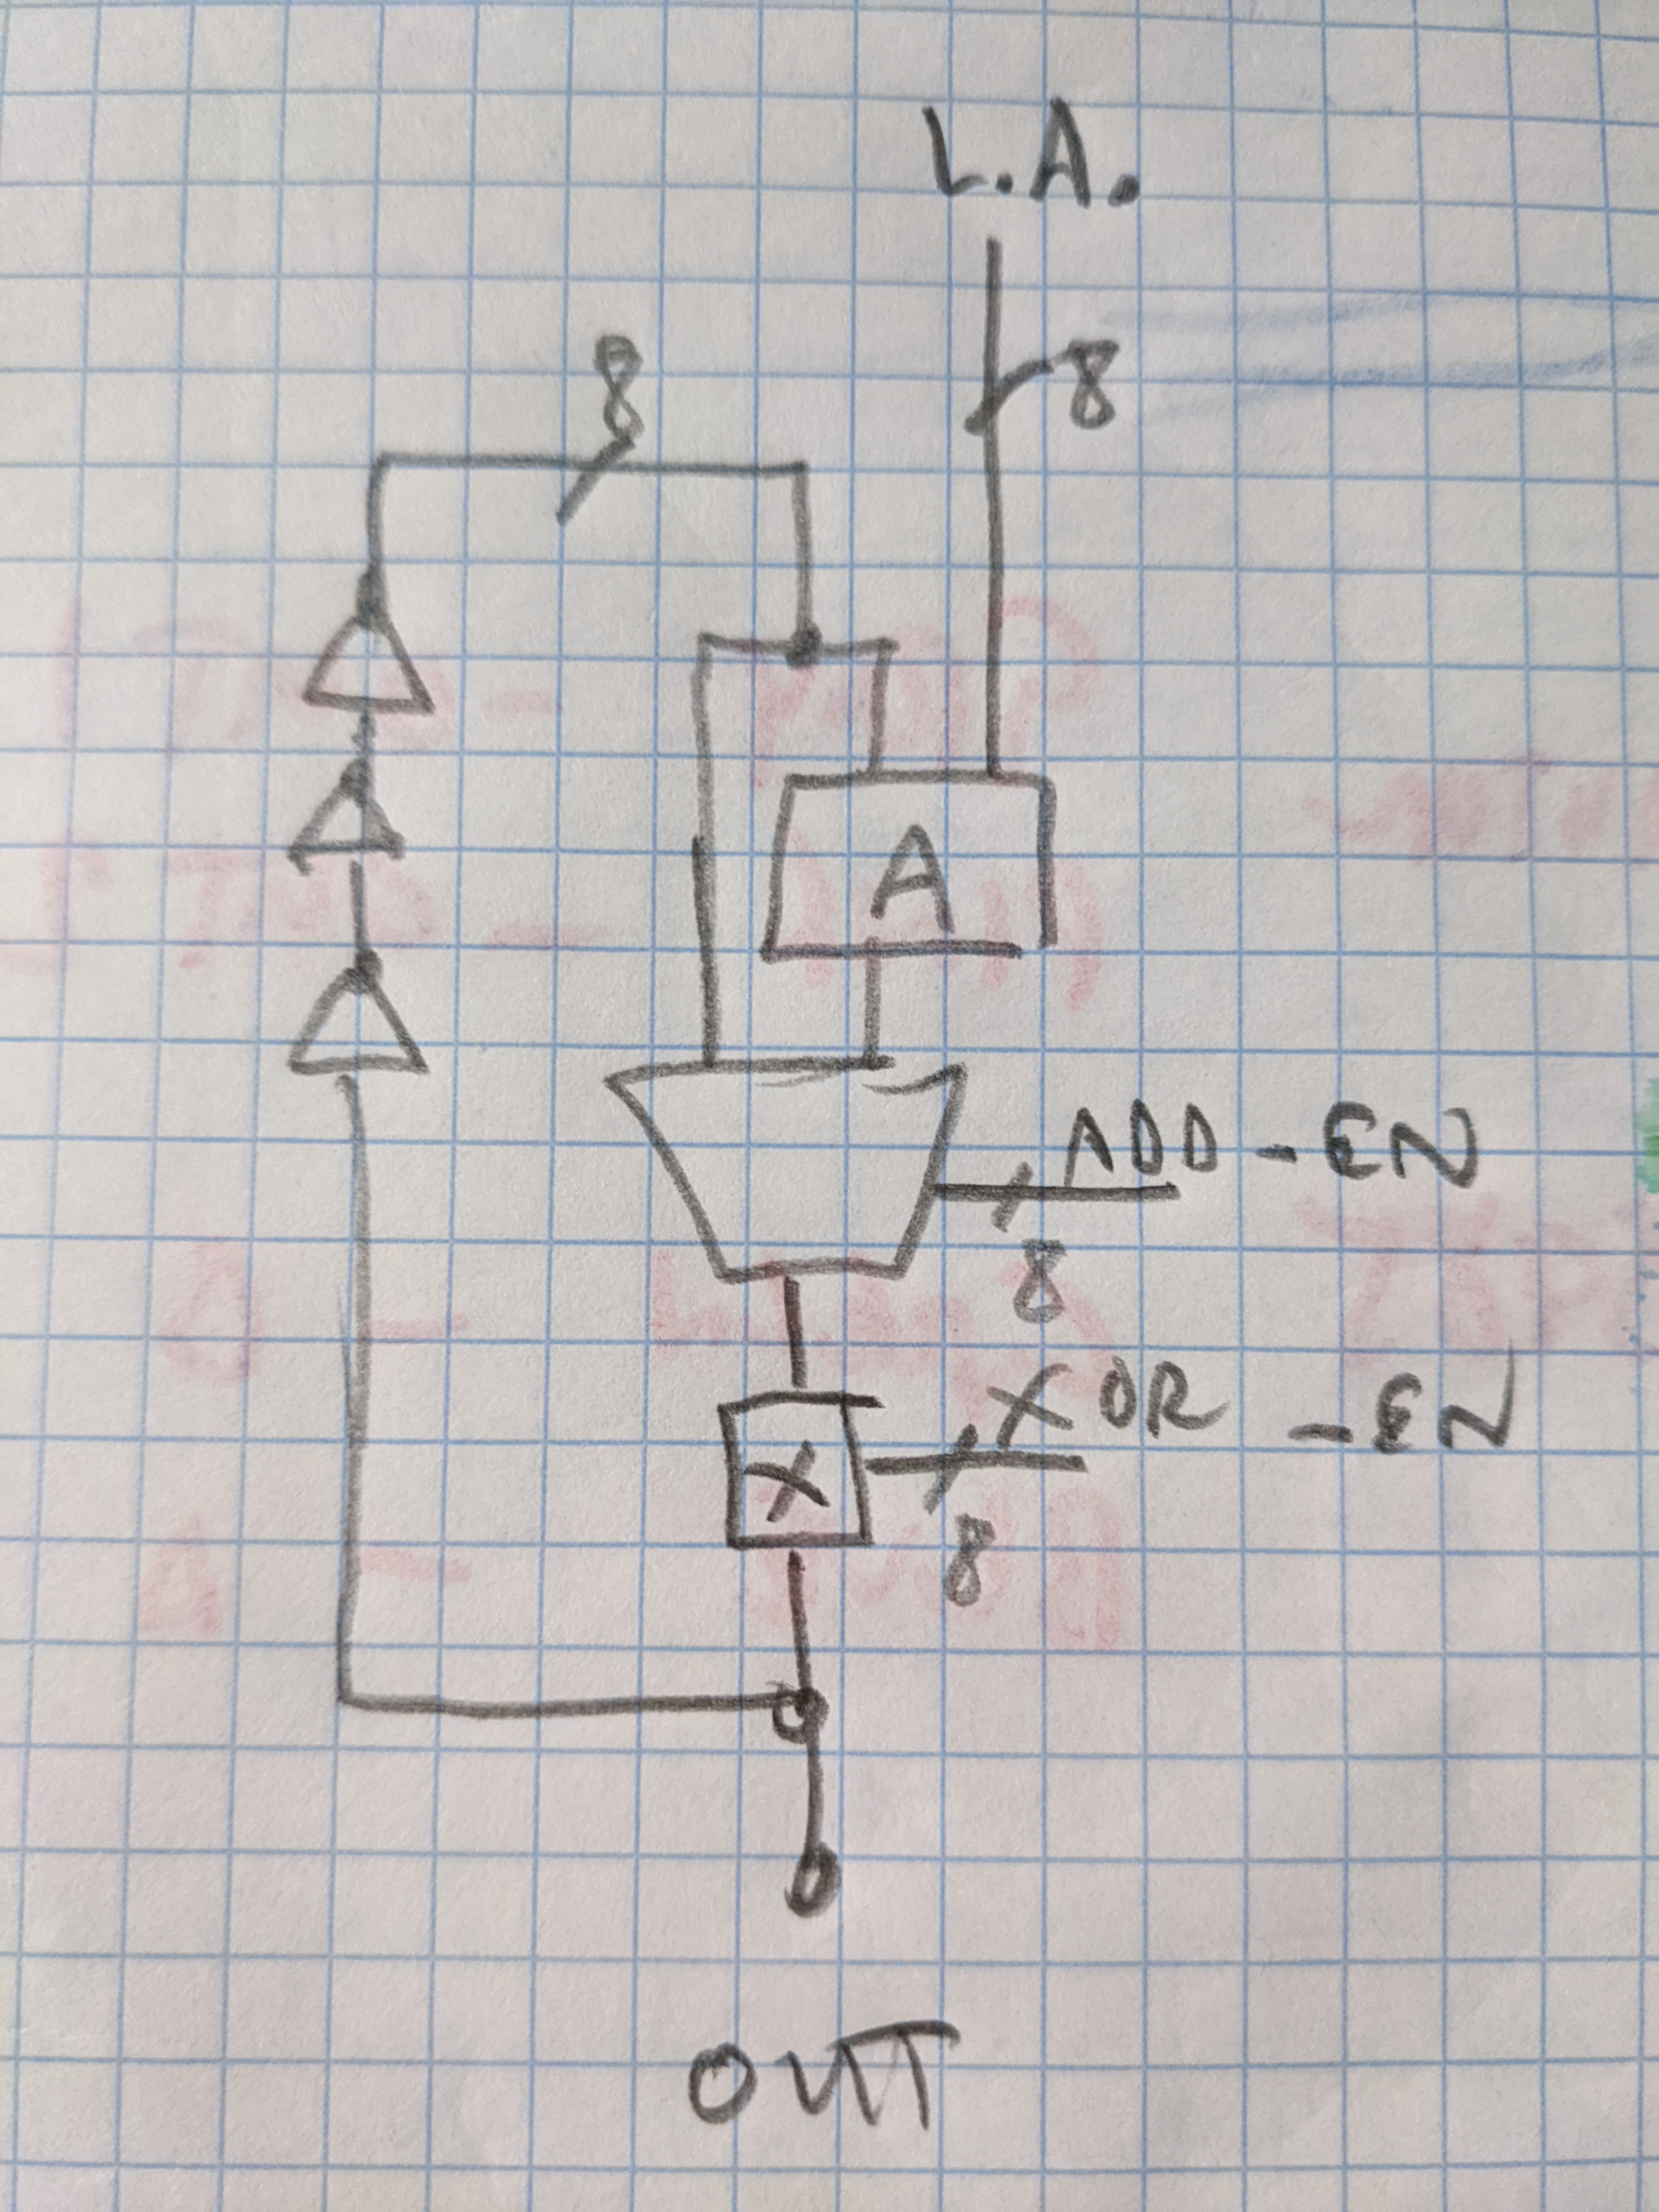 L.A.
8
8
A
ADD-EN
8
XOR-EN
X
8
OUT